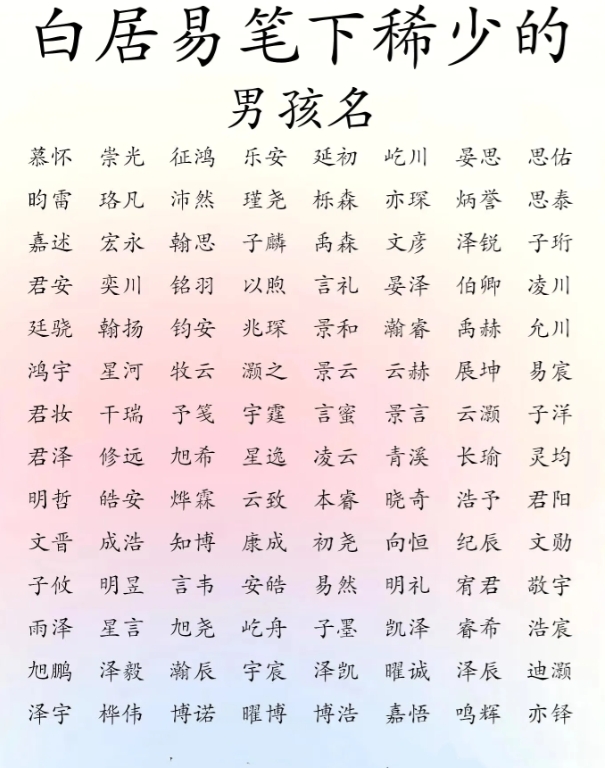 白居易笔下稀少的
男孩名
慕怀 崇光 征鸿 乐安 延初 屹川 晏思 思佑
昀雷 珞凡 沛然 瑾尧 栎森 亦琛 炳誉 思泰
嘉述 宏永 翰思 子麟 禹森 文彦 泽锐 子珩
君安 奕川 铭羽 以煦 言礼 晏泽 伯卿 凌川
廷骁 翰扬 钧安 兆琛 景和 瀚睿 禹赫 允川
鸿宇 星河 牧云 灏之 景云 云赫 展坤 易宸
君妆 干瑞 予笺 宇霆 言蜜 景言 云灏 子洋
君泽 修远 旭希 星逸 凌云 青溪 长瑜 灵均
明哲 皓安 烨霖 云致 本睿 晓奇 浩予 君阳
文晋 成浩 知博 康成 初尧 向恒 纪辰 文勋
子攸 明昱 言韦 安皓 易然 明礼 宥君 敬宇
雨泽 星言 旭尧 屹舟 子墨 凯泽 睿希 浩宸
旭鹏 泽毅 瀚辰 宇宸 泽凯 曜诚 泽辰 迪灏
泽宇 桦伟 博诺 曜博 博浩 嘉悟 鸣辉 亦铎